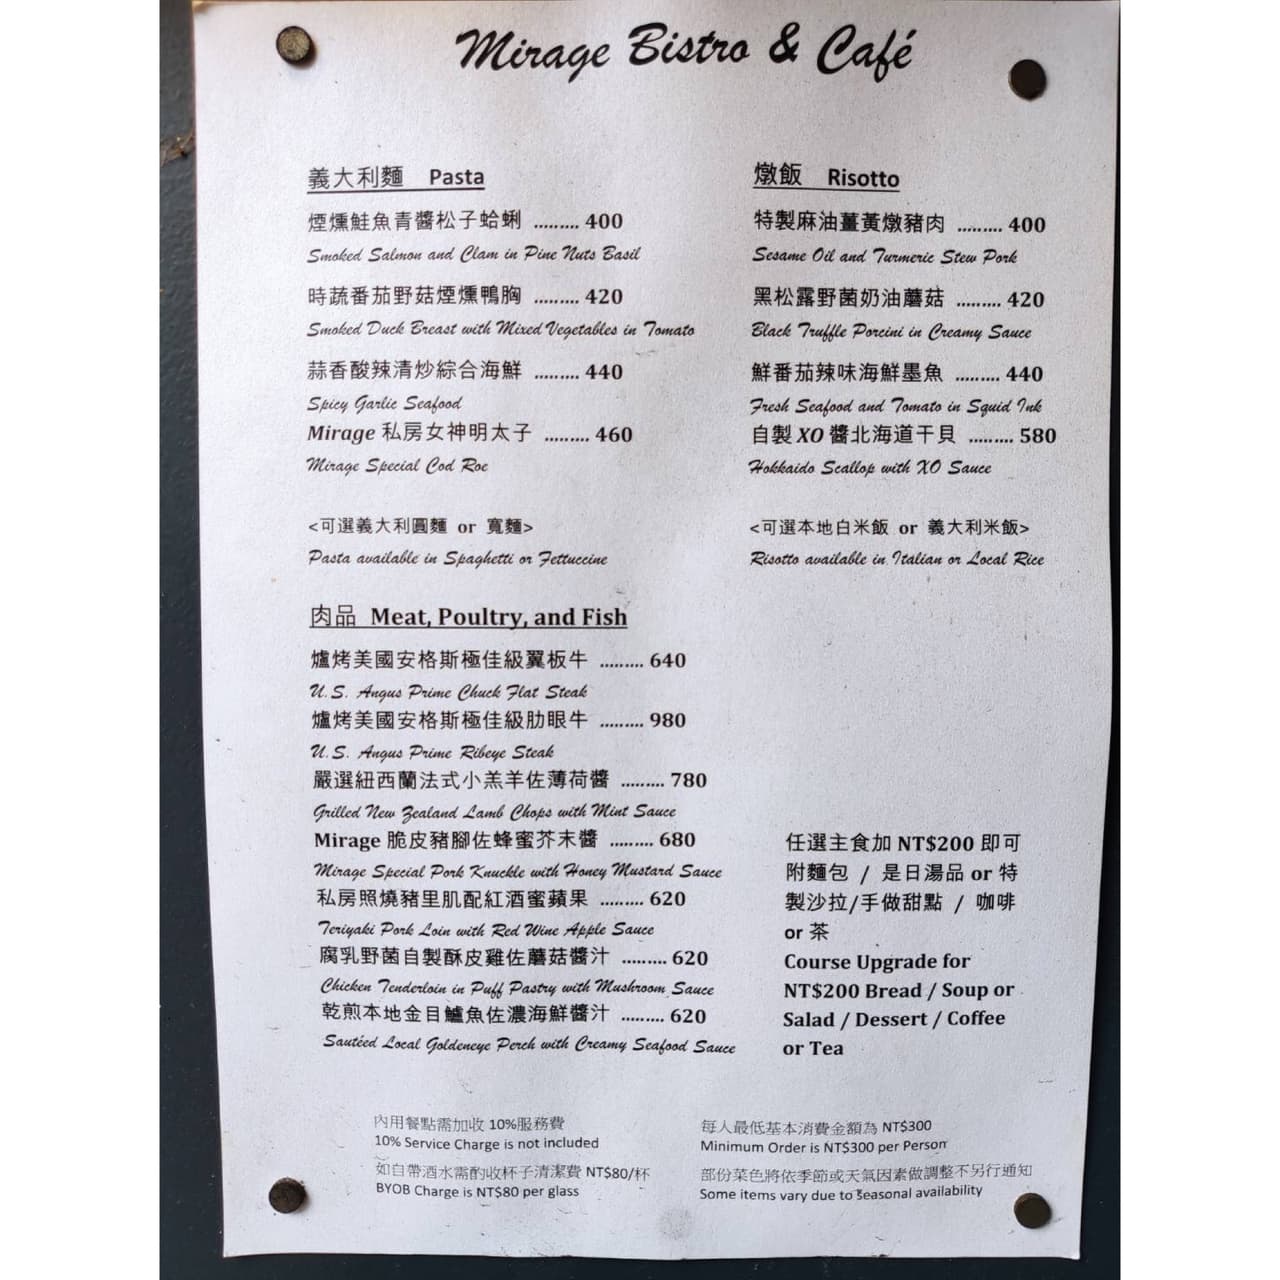 Mirage Bistro & Café
義大利麵 Pasta
煙燻鮭魚青醬松子蛤蜊 ......... 400
Smoked Salmon and Clam in Pine Nuts Basil
時蔬番茄野菇煙燻鴨胸 ......... 420
Smoked Duck Breast with Mixed Vegetables in Tomato
蒜香酸辣清炒綜合海鮮 ......... 440
Spicy Garlic Seafood
Mirage 私房女神明太子 ......... 460
Mirage Special Cod Roe
<可選義大利圓麵 or 寬麵>
Pasta available in Spaghetti or Fettuccine
燉飯 Risotto
特製麻油薑黃燉豬肉 ......... 400
Sesame Oil and Turmeric Stew Pork
黑松露野菌奶油蘑菇 ......... 420
Black Truffle Porcini in Creamy Sauce
鮮番茄辣味海鮮墨魚 ......... 440
Fresh Seafood and Tomato in Squid Ink
自製 XO 醬北海道干貝 ......... 580
Hokkaido Scallop with XO Sauce
<可選本地白米飯 or 義大利米飯>
Risotto available in Italian or Local Rice
肉品 Meat, Poultry, and Fish
爐烤美國安格斯極佳級翼板牛 ......... 640
U.S. Angus Prime Chuck Flat Steak
爐烤美國安格斯極佳級肋眼牛 ......... 980
U.S. Angus Prime Ribeye Steak
嚴選紐西蘭法式小羔羊佐薄荷醬 ......... 780
Grilled New Zealand Lamb Chops with Mint Sauce
Mirage 脆皮豬腳佐蜂蜜芥末醬 ......... 680
Mirage Special Pork Knuckle with Honey Mustard Sauce
私房照燒豬里肌配紅酒蜜蘋果 ......... 620
Teriyaki Pork Loin with Red Wine Apple Sauce
腐乳野菌自製酥皮雞佐蘑菇醬汁 ......... 620
Chicken Tenderloin in Puff Pastry with Mushroom Sauce
乾煎本地金目鱸魚佐濃海鮮醬汁 ......... 620
Sautéed Local Goldeneye Perch with Creamy Seafood Sauce
任選主食加 NT$200 即可
附麵包 / 是日湯品 or 特
製沙拉/手做甜點 / 咖啡
or 茶
Course Upgrade for
NT$200 Bread / Soup or
Salad / Dessert / Coffee
or Tea
內用餐點需加收 10%服務費
10% Service Charge is not included
如自帶酒水需酌收杯子清潔費 NT$80/杯
BYOB Charge is NT$80 per glass
每人最低基本消費金額為 NT$300
Minimum Order is NT$300 per Person
部份菜色將依季節或天氣因素做調整不另行通知
Some items vary due to seasonal availability